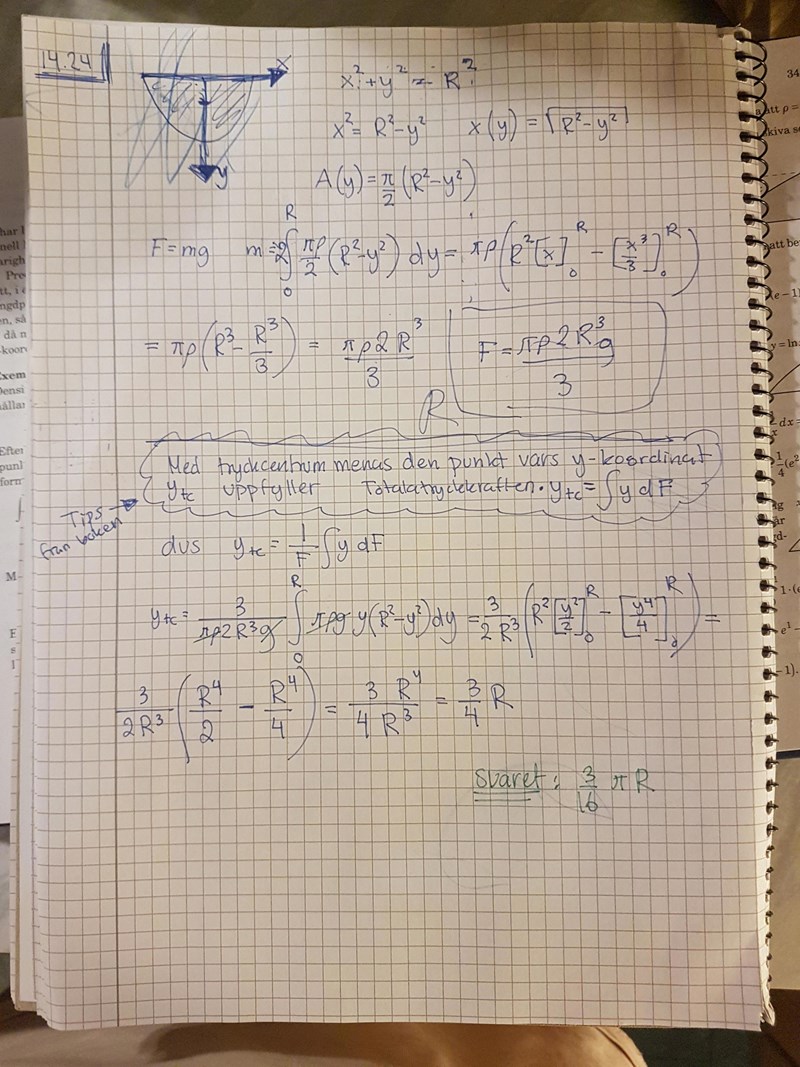 14.24
x
y
x² + y² = R²
x² = R² - y²   x(y) = √(R² - y²)
A(y) = π/2 (R² - y²)
F = mg   m = 2∫₀ᴿ πρ/2 (R² - y²) dy = πρ(R²[x]₀ᴿ - [x³/3]₀ᴿ)
= πρ(R³ - R³/3) = πρ2R³/3   F = πρ2R³g/3
R
Med tryckcentrum menas den punkt vars y-koordinat
y_tc uppfyller   Totala tryckkraften · y_tc = ∫y dF
Tips från boken
dvs   y_tc = 1/F ∫y dF
y_tc = 3/(πρ2R³g) ∫₀ᴿ πρg y(R² - y²) dy = 3/(2R³) (R²[y²/2]₀ᴿ - [y⁴/4]₀ᴿ) =
3/(2R³) (R⁴/2 - R⁴/4) = 3 R⁴/(4 R³) = 3/4 R
Svaret: 3/16 π R